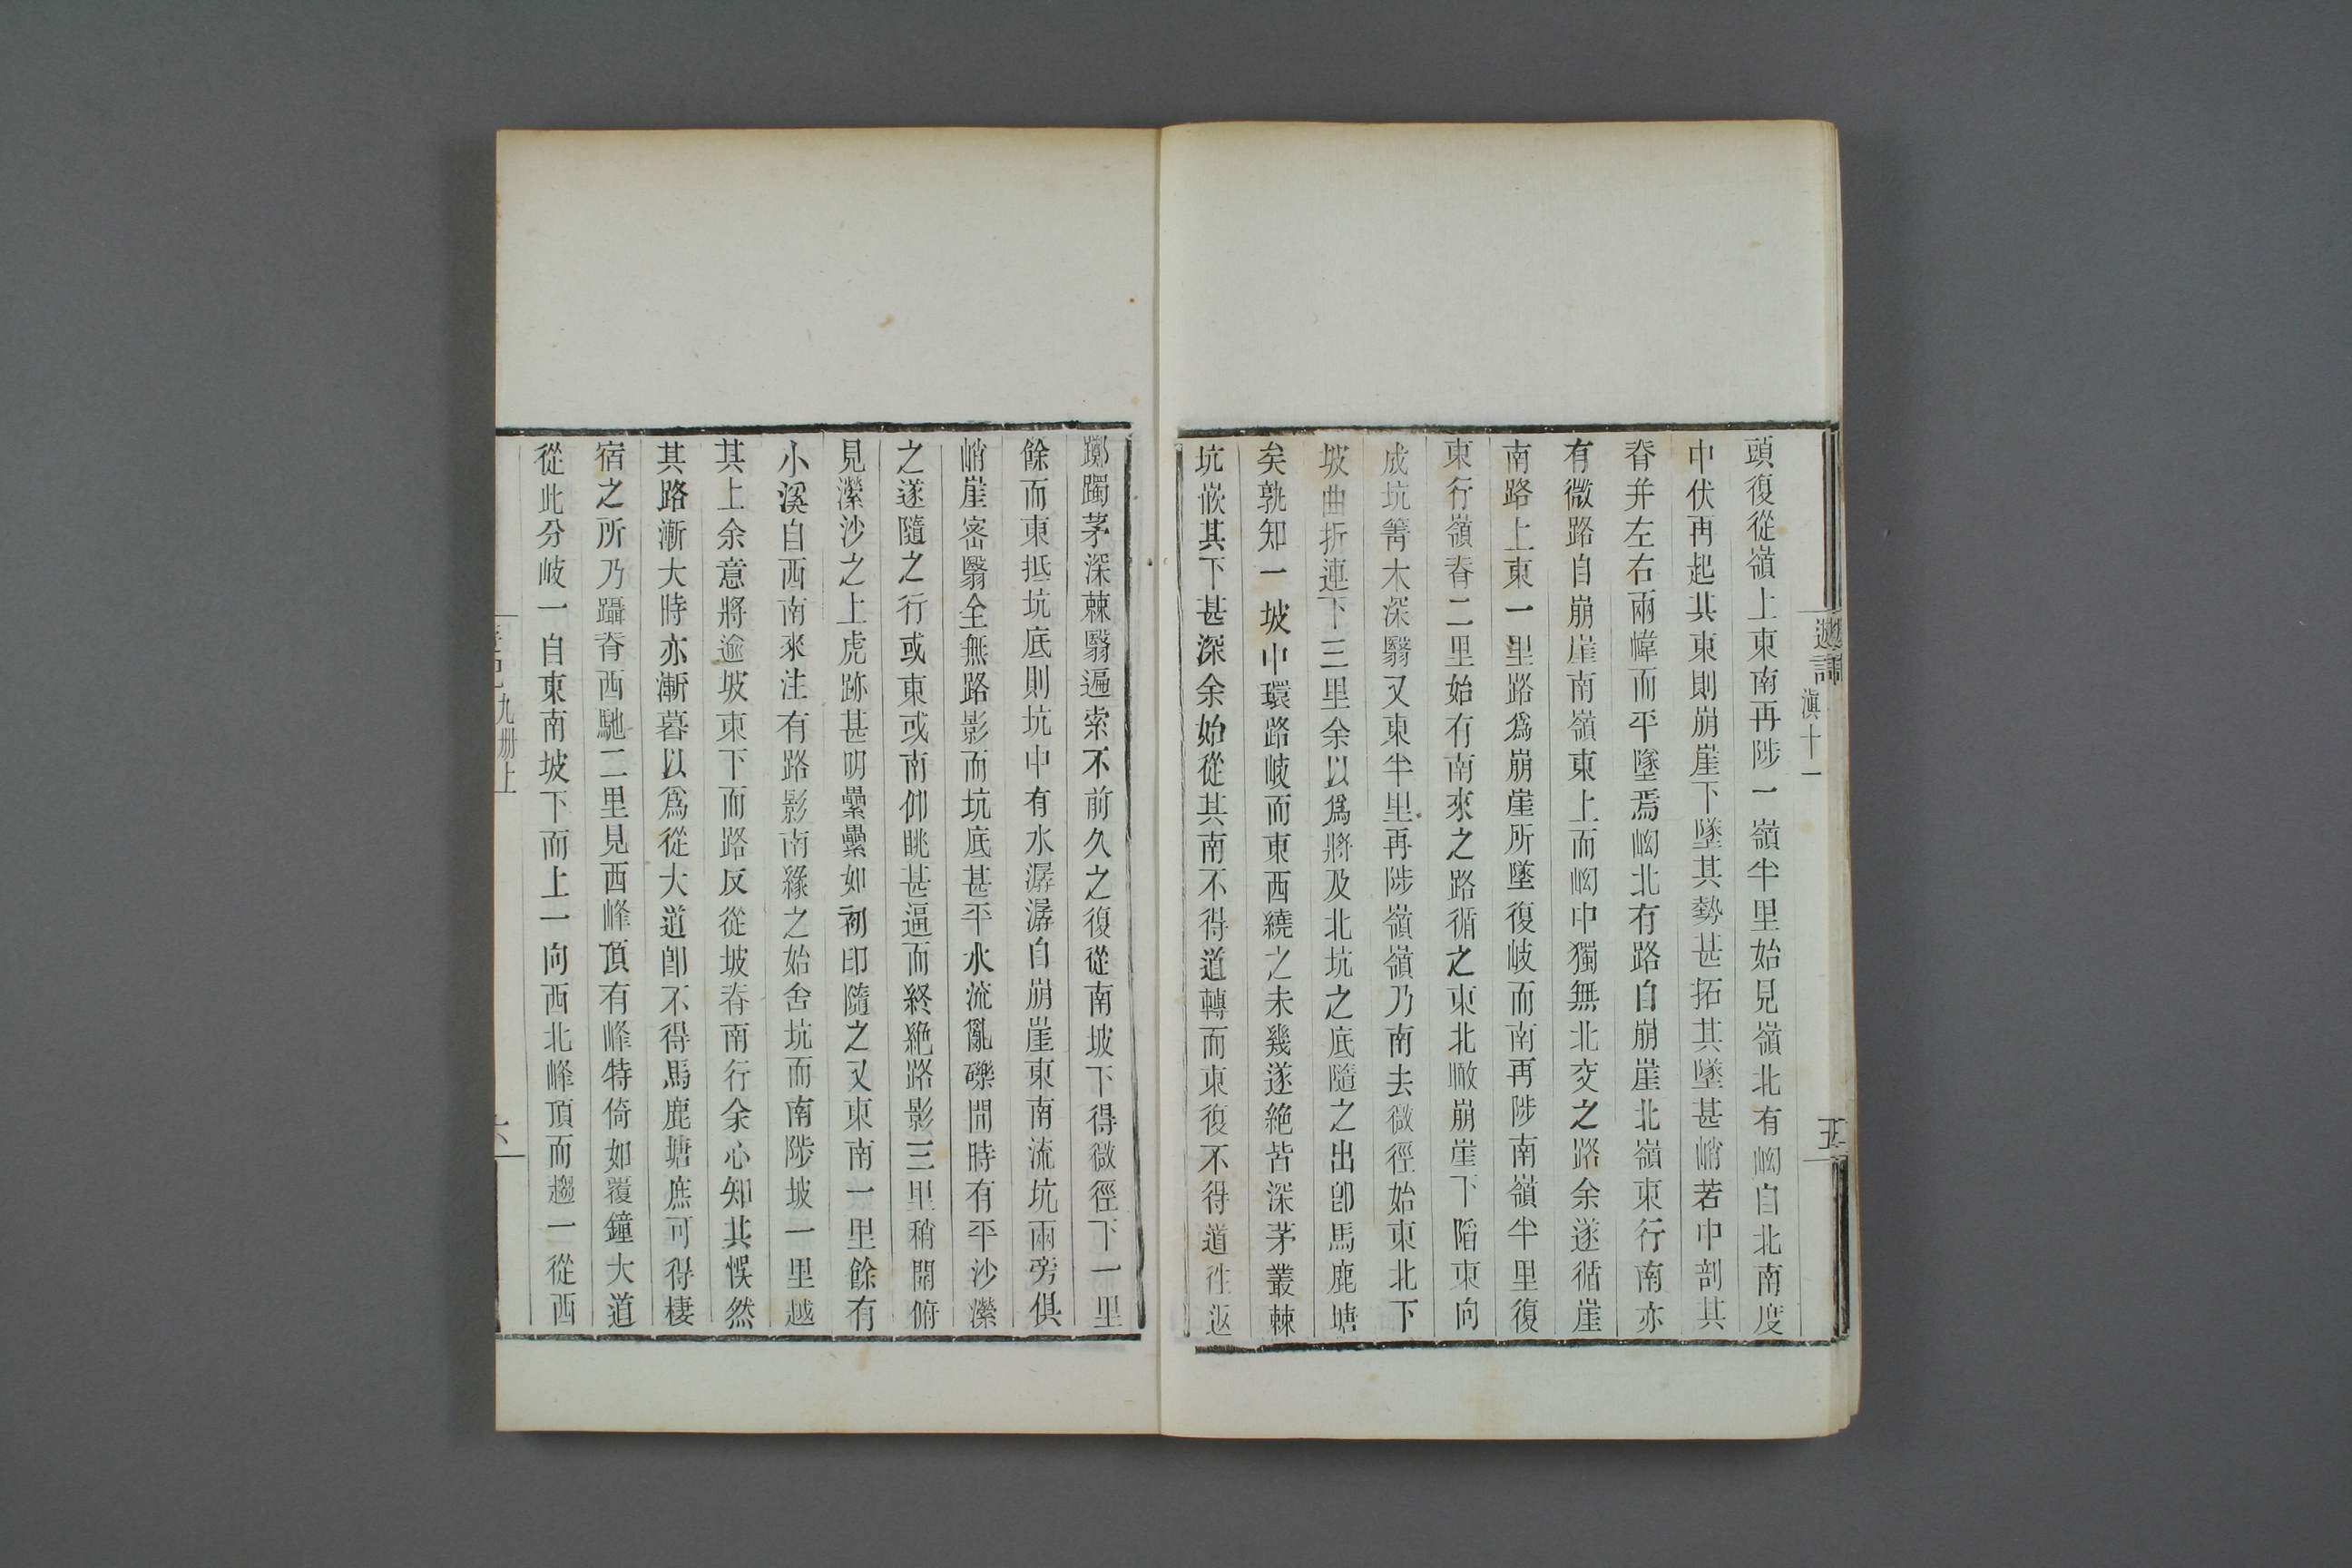 滇十一
五
頭復從嶺上東南再陟一嶺半里始見嶺北有坳自北南度
中伏再起其東則崩崖下墜其勢甚拓其墜甚峭若中剖其
脊并左右兩幃而平墜焉坳北有路自崩崖北嶺東行南亦
有微路自崩崖南嶺東上而坳中獨無北交之路余遂循崖
南路上東一里路爲崩崖所墜復岐而南再陟南嶺半里復
東行嶺脊二里始有南來之路循之東北瞰崩崖下陷東向
成坑箐木深翳又東半里再陟嶺嶺乃南去微徑始東北下
坡曲折連下三里余以爲將及北坑之底隨之出卽馬鹿塘
矣孰知一坡中環路岐而東西繞之未幾遂絶皆深茅叢棘
坑嵌其下甚深余始從其南不得道轉而東復不得道往返
躑躅茅深棘翳遍索不前久之復從南坡下得微徑下一里
餘而東抵坑底則坑中有水潺潺自崩崖東南流坑兩旁俱
峭崖密翳全無路影而坑底甚平水流亂礫間時有平沙瀠
之遂隨之行或東或南仰眺甚逼而終絶路影三里稍開俯
見瀠沙之上虎跡甚明纍纍如初印隨之又東南一里餘有
小溪自西南來注有路影南緣之始舍坑而南陟坡一里越
其上余意將逾坡東下而路反從坡脊南行余心知其悞然
其路漸大時亦漸暮以爲從大道卽不得馬鹿塘庶可得棲
宿之所乃躡脊西馳二里見西峰頂有峰特倚如覆鐘大道
從此分岐一自東南坡下而上一向西北峰頂而趨一從西
九册上